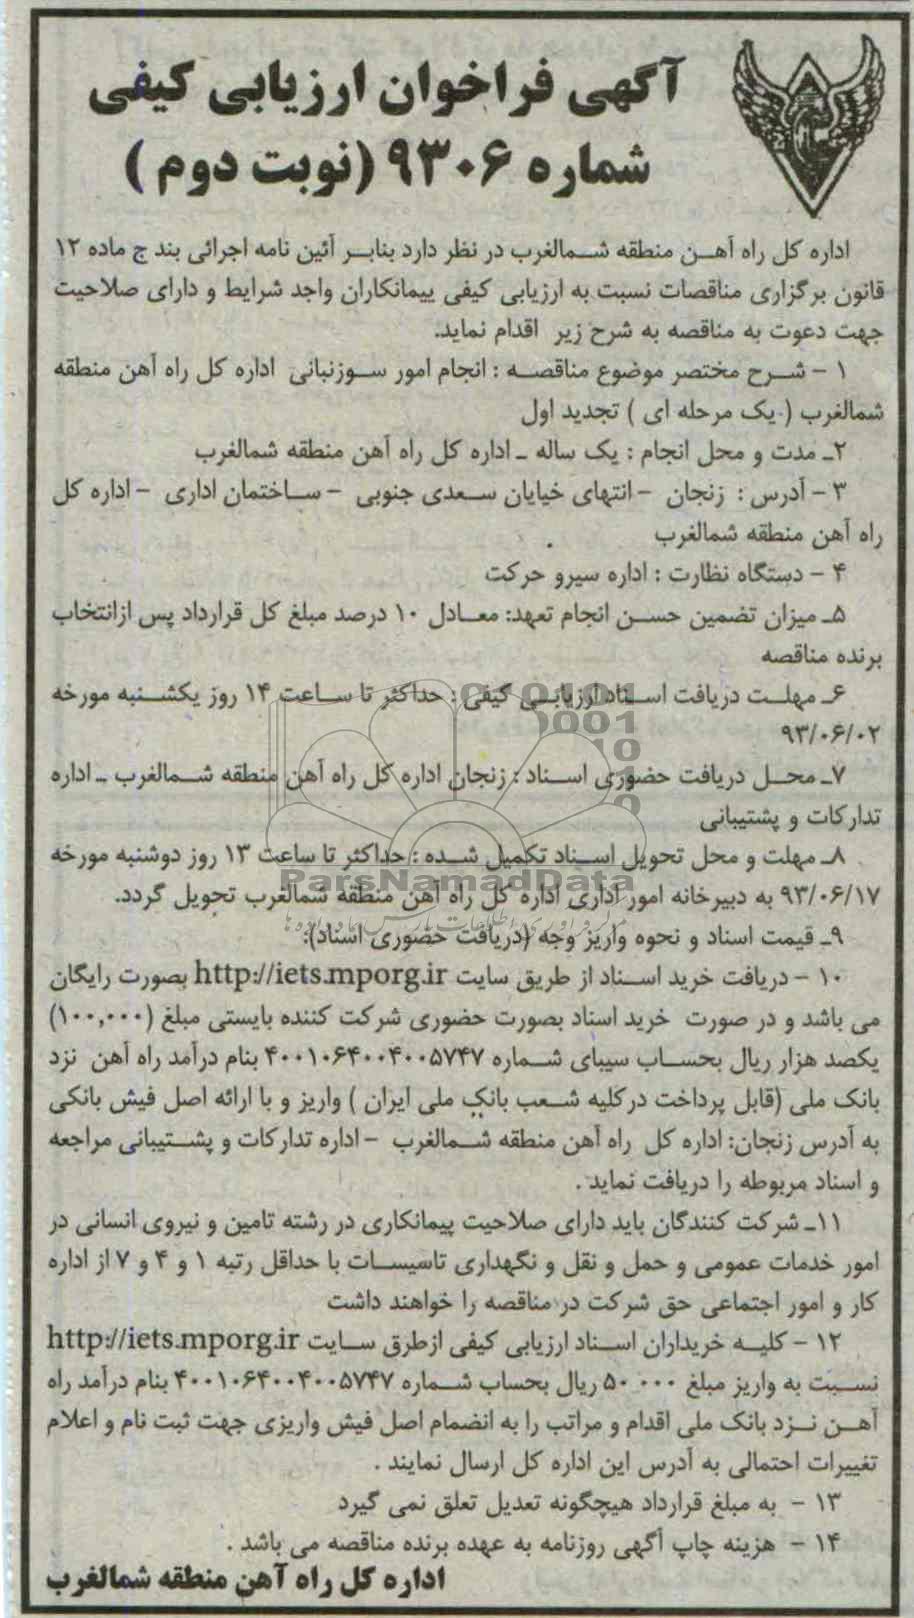 آگهی فراخوان ارزیابی کیفی
شماره ۹۳۰۶ (نوبت دوم )
اداره کل راه آهن منطقه شمالغرب در نظر دارد بنابر آئین نامه اجرائی بند ج ماده ۱۲
قانون برگزاری مناقصات نسبت به ارزیابی کیفی پیمانکاران واجد شرایط و دارای صلاحیت
جهت دعوت به مناقصه به شرح زیر اقدام نماید.
۱ - شرح مختصر موضوع مناقصه : انجام امور سوزنبانی اداره کل راه آهن منطقه
شمالغرب ( یک مرحله ای ) تجدید اول
۲ـ مدت و محل انجام : یک ساله ـ اداره کل راه آهن منطقه شمالغرب
۳ - آدرس : زنجان - انتهای خیایان سعدی جنوبی - ساختمان اداری - اداره کل
راه آهن منطقه شمالغرب
۴ - دستگاه نظارت : اداره سیرو حرکت
۵ـ میزان تضمین حسن انجام تعهد: معادل ۱۰ درصد مبلغ کل قرارداد پس ازانتخاب
برنده مناقصه
۶ـ مهلت دریافت اسناد ارزیابی کیفی : حداکثر تا ساعت ۱۴ روز یکشنبه مورخه
۹۳/۰۶/۰۲
۷ـ محل دریافت حضوری اسناد : زنجان اداره کل راه آهن منطقه شمالغرب ـ اداره
تدارکات و پشتیبانی
۸ـ مهلت و محل تحویل اسناد تکمیل شده : حداکثر تا ساعت ۱۳ روز دوشنبه مورخه
۹۳/۰۶/۱۷ به دبیرخانه امور اداری اداره کل راه آهن منطقه شمالغرب تحویل گردد.
ParsNamadData
مرکز فرآوری اطلاعات پارس نماد داده ها
۹ـ قیمت اسناد و نحوه واریز وجه (دریافت حضوری اسناد):
۱۰ - دریافت خرید اسناد از طریق سایت http://iets.mporg.ir بصورت رایگان
می باشد و در صورت خرید اسناد بصورت حضوری شرکت کننده بایستی مبلغ (۱۰۰,۰۰۰)
یکصد هزار ریال بحساب سیبای شماره ۴۰۰۱۰۶۴۰۰۴۰۰۵۷۴۷ بنام درآمد راه آهن نزد
بانک ملی (قابل پرداخت درکلیه شعب بانک ملی ایران ) واریز و با ارائه اصل فیش بانکی
به آدرس زنجان: اداره کل راه آهن منطقه شمالغرب - اداره تدارکات و پشتیبانی مراجعه
و اسناد مربوطه را دریافت نماید .
۱۱ـ شرکت کنندگان باید دارای صلاحیت پیمانکاری در رشته تامین و نیروی انسانی در
امور خدمات عمومی و حمل و نقل و نگهداری تاسیسات با حداقل رتبه ۱ و ۴ و ۷ از اداره
کار و امور اجتماعی حق شرکت در مناقصه را خواهند داشت
۱۲ - کلیه خریداران اسناد ارزیابی کیفی ازطرق سایت http://iets.mporg.ir
نسبت به واریز مبلغ ۵۰ ۰۰۰ ریال بحساب شماره ۴۰۰۱۰۶۴۰۰۴۰۰۵۷۴۷ بنام درآمد راه
آهن نزد بانک ملی اقدام و مراتب را به انضمام اصل فیش واریزی جهت ثبت نام و اعلام
تغییرات احتمالی به آدرس این اداره کل ارسال نمایند .
۱۳ - به مبلغ قرارداد هیچگونه تعدیل تعلق نمی گیرد
۱۴ - هزینه چاپ آگهی روزنامه به عهده برنده مناقصه می باشد .
اداره کل راه آهن منطقه شمالغرب